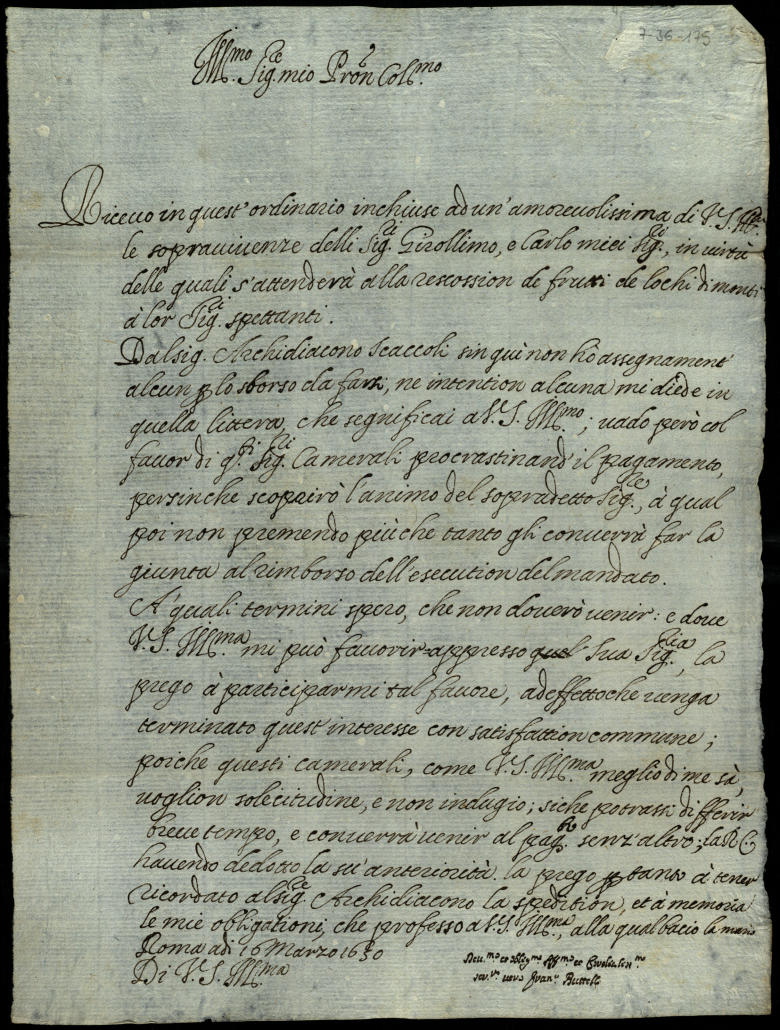 7-36-175
Ill.mo Sig.re mio Pron Col.mo
Riceuo in quest' ordinario inchiuse ad un' amoreuolissima di V.S. Ill.ma
le soprauiuenze delli Sig.ri Girollimo, e Carlo miei Sig.ri, in uirtù
delle quali s'attenderà alla rescossion de frutti de lochi di monti
à lor Sig.ri spettanti.
Dal sig. Archidiacono Scaccoli sin quì non hò assegnament
alcun p lo sborso da farsi, ne intention alcuna mi diede in
quella littera, che segnificai a V.S. Ill.mo; uado però col
fauor di q.sti Sig.ri Camerali procrastinand il pagamento,
persinche scoprirò l'animo del sopradetto Sig.re, à qual
poi non premendo più che tanto gli conuerrà far la
giunta al rimborso dell'esecution del mandato.
A' quali termini spero, che non douerò uenir: e doue
V.S. Ill.ma mi può fauorir appresso Sua Sig.ria, la
prego à participarmi tal fauore, ad effetto che uenga
terminato quest' interesse con satisfattion commune;
poiche questi camerali, come V.S. Ill.ma meglio di me sà,
uoglion solecitudine, e non indugio; siche potrassi differir
breue tempo, e conuerrà uenir al pag.to senz'altro; la R.C.
hauendo dedotto la su' anteriorità. la prego p tanto à tener
ricordato al sig.re Archidiacono la spedition, et à memoria
le mie obligationi, che professo a V.S. Ill.ma, alla qual bacio le mani
Roma adì 16 Marzo 1630
Di V.S. Ill.ma
Deu.mo et oblig.mo
ser.re uero